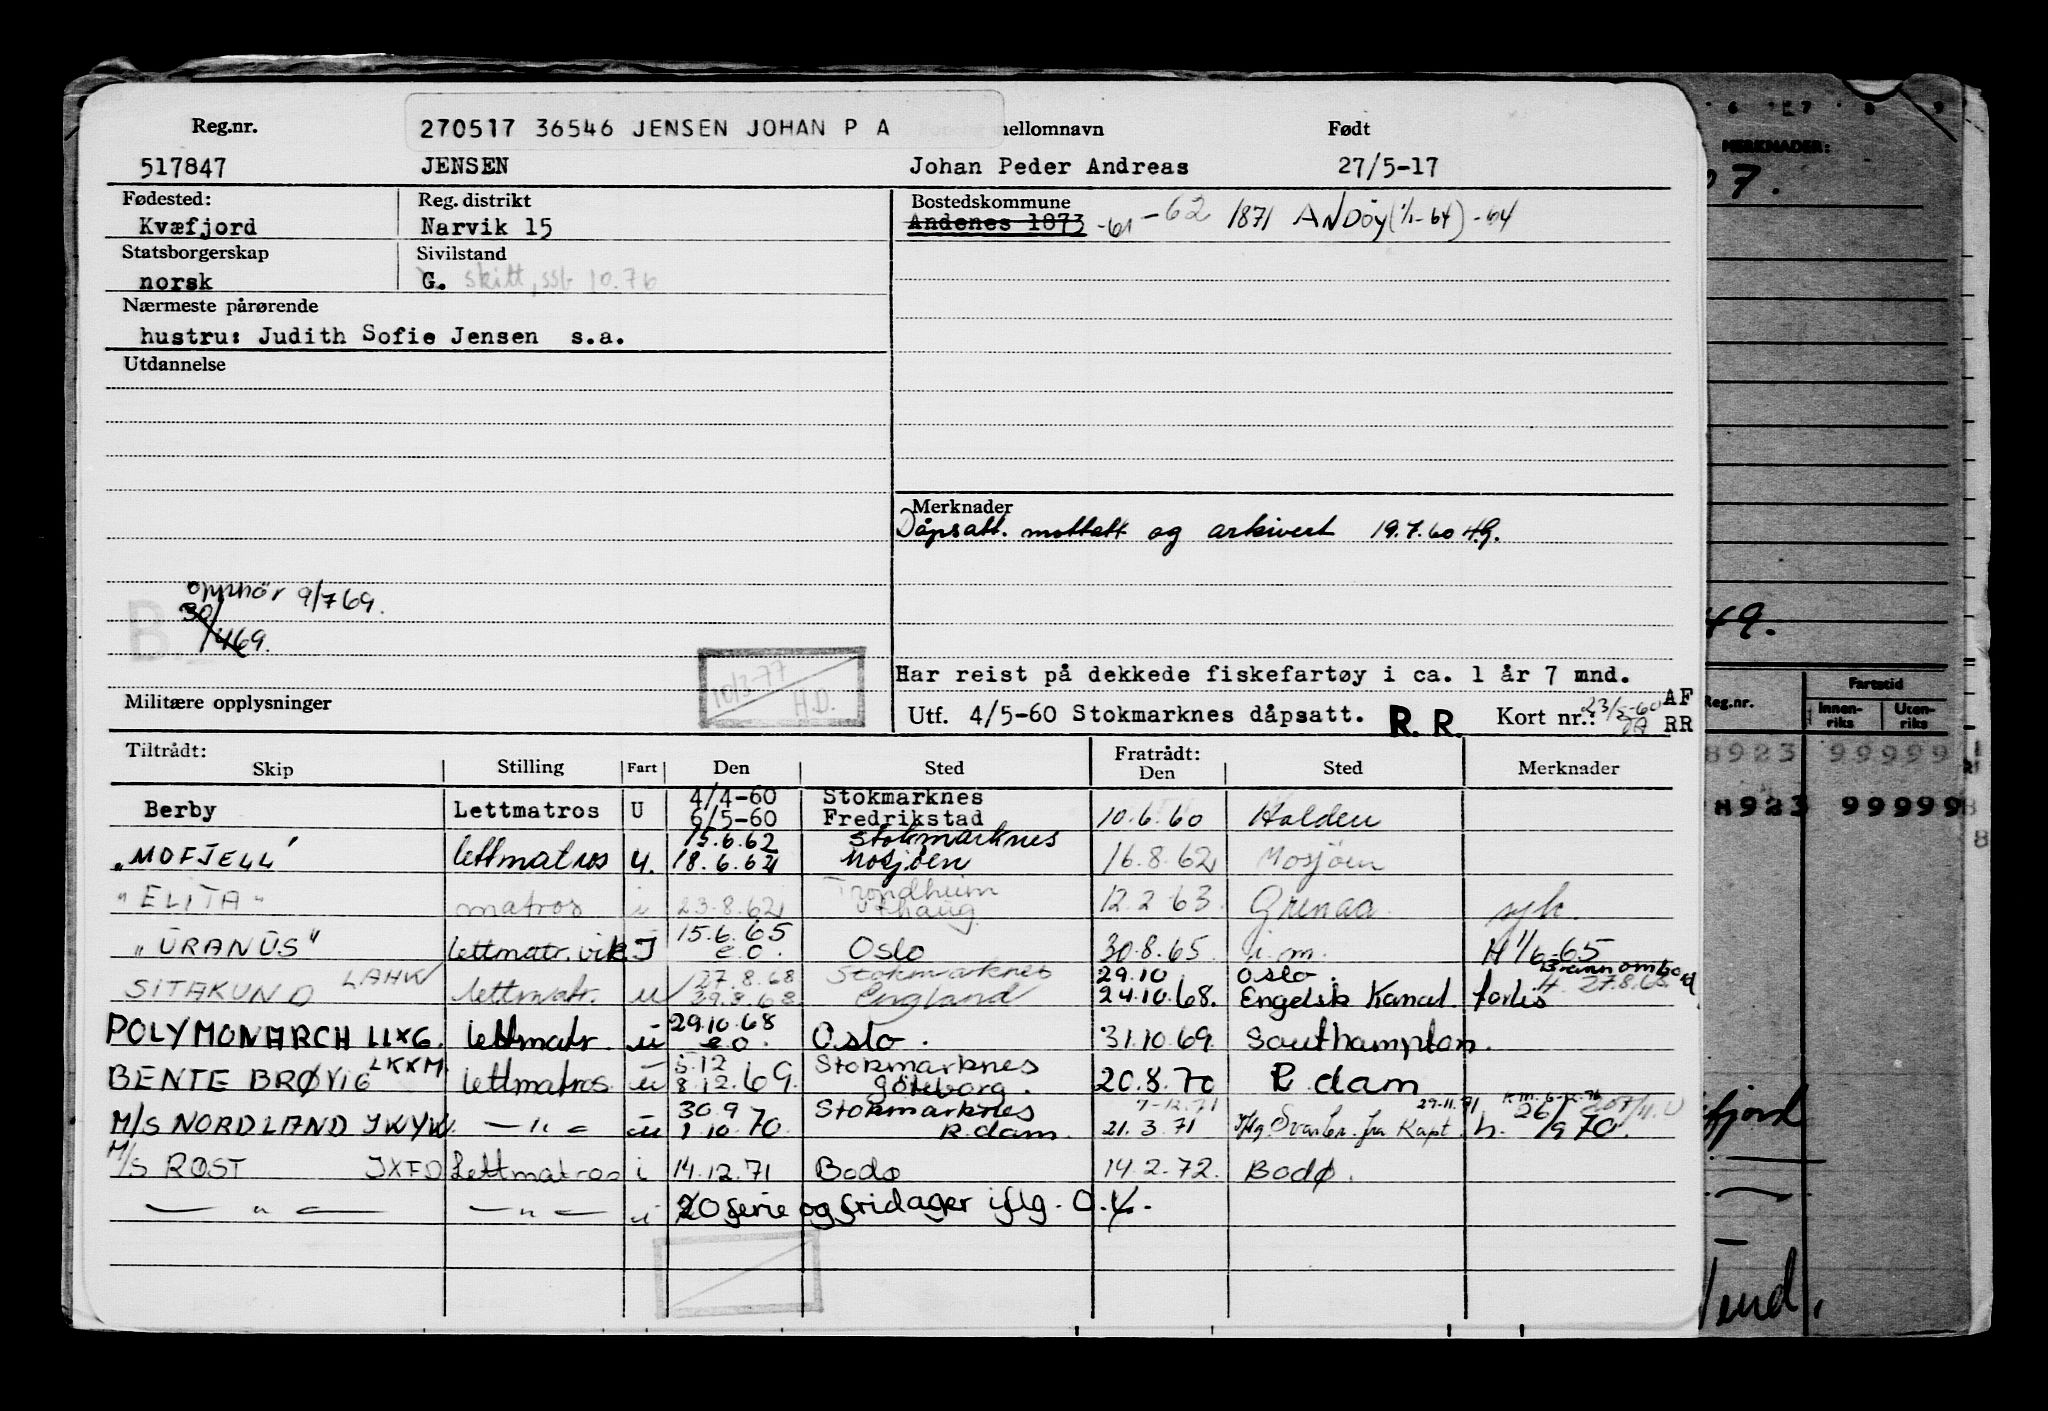 Reg.nr. 270517 36546 JENSEN JOHAN P A ellomnavn Født
517847 JENSEN Johan Peder Andreas 27/5-17
Fødested: Reg. distrikt Bostedskommune
Kvæfjord Narvik 15 Andenes 1873 -61 -62 1871 ANDÖY (1/1-64) -64
Statsborgerskap Sivilstand
norsk G. skilt, ssb 10.76
Nærmeste pårørende
hustru: Judith Sofie Jensen s.a.
Utdannelse
Merknader
Dåpsatt. mottatt og arkivert 19.7.60 H.G.
opphør 9/7 69.
30/4 69.
B.
10/3-77
H.D.
Har reist på dekkede fiskefartøy i ca. 1 år 7 mnd.
Militære opplysninger
Utf. 4/5-60 Stokmarknes dåpsatt. R. R. Kort nr.: 23/5-60 AF
RR
Tiltrådt: Fratrådt:
Skip Stilling Fart Den Sted Den Sted Merknader
4/4-60 Stokmarknes
Berby Lettmatros U 6/5-60 Fredrikstad 10.6.60 Halden
15.6.62 Stokmarknes
"MOFJELL" lettmatros u. 18.6.62 Mosjöen 16.8.62 Mosjöen
Trondheim
"ELITA" matros i 23.8.62 12.2.63. Grenaa. syk.
15.6.65
"URANUS" lettmatr. vik I e.o. Oslo 30.8.65 i.m. H 1/6-65
LAHW 27.8.68 Stokmarknes 29.10 Oslo. Brann ombord
SITAKUND lettmatr. u 29.8.68 England 24.10.68. Engelsk Kanal forlis H. 27.8.68
29.10.68
POLYMONARCH LLXG. lettmatr. u e.o. Oslo. 31.10.69 Southampton.
LKXM. 5.12 Stokmarknes
BENTE BRØVIG lettmatros. u 8.12.69. Göteborg. 20.8.70 R dam
30.9 Stokmarknes 7-12.71 29-11.71
M/S NORDLAND JWYW. — " — u 1.10.70. R.dam. 21.3.71 iflg. Svarbr. fra Kapt. h. 26/9 70.
M/S RØST JXFD Lettmatros i 14.12.71 Bodø 14.2.72. Bodø.
— " — — " — i 20 ferie og fridager iflg. O.K.
6 7 8 9
MERKNADER:
07.
49.
Reg.nr. Fartstid
Innenriks Utenriks
8923 99999
8923 99999
fjord